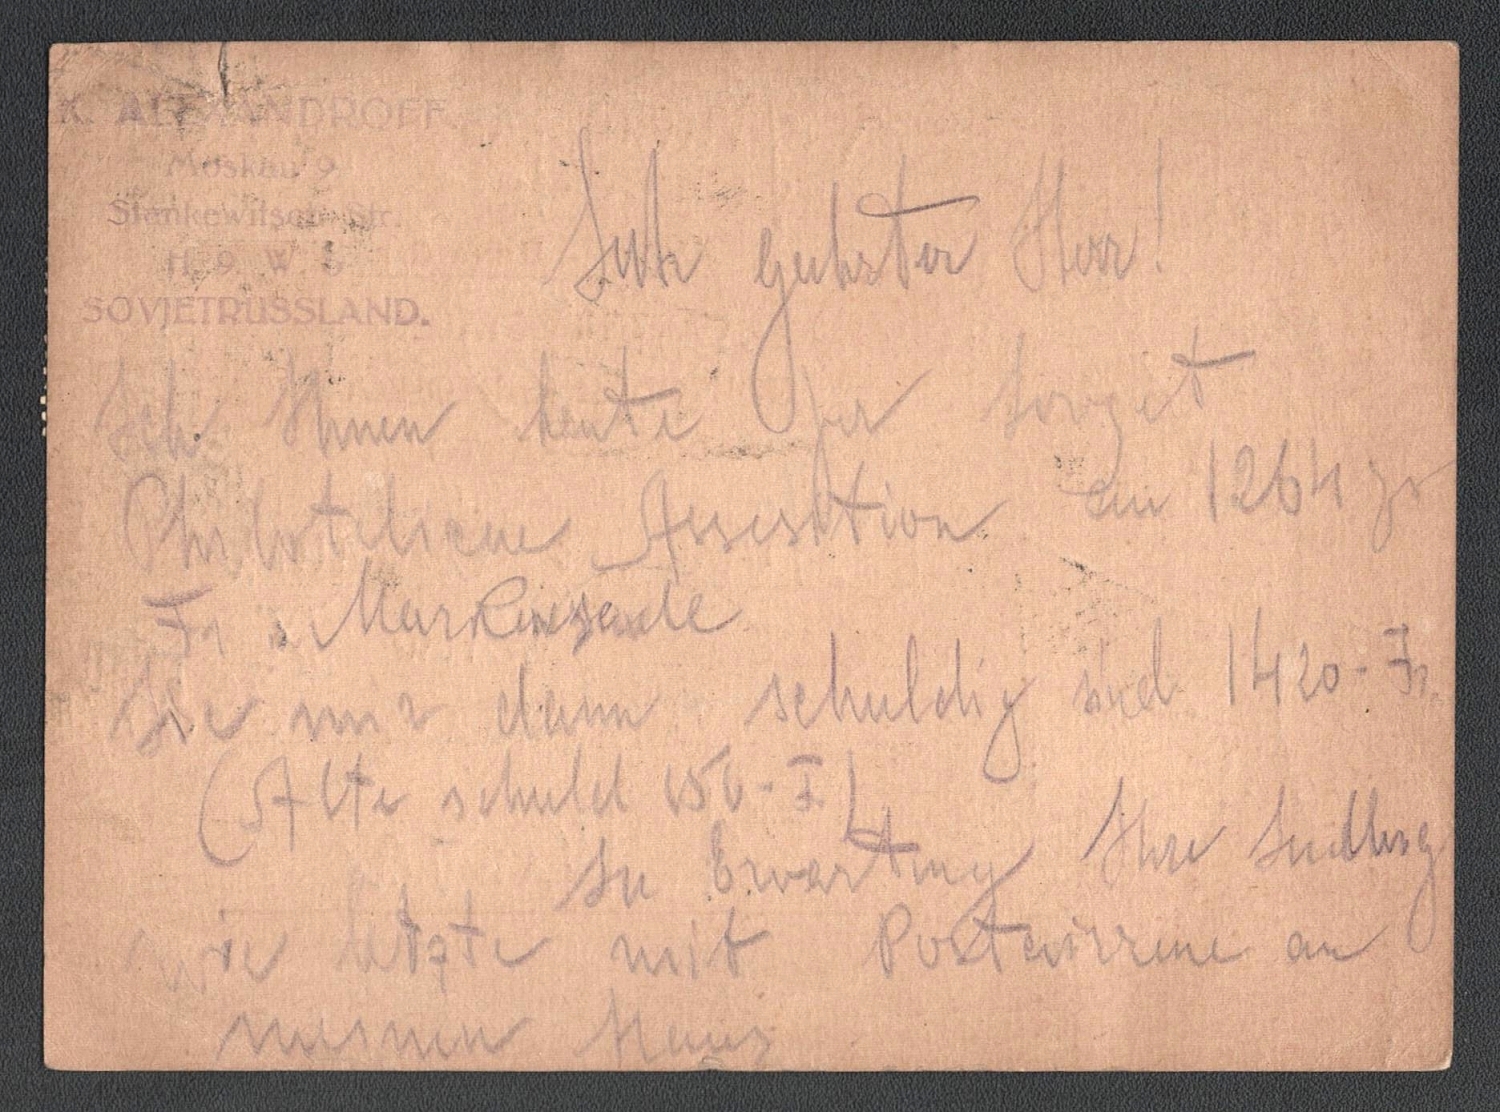 K. ALEXANDROFF
Moskau 9
Stankewitsch Str.
H. 9 W. 5
SOVJETRUSSLAND.
Sehr geehrter Herr!
Ich Ihnen heute per Sovjet
Philatelische Assosition ein 1264
Fr Markensende
Sie mir dann schuldig sind 1420- Fr.
(Alte schuld 156- F)
In Erwartung Ihre Sendung
wie letzte mit Postavisrene an
meinen Haus